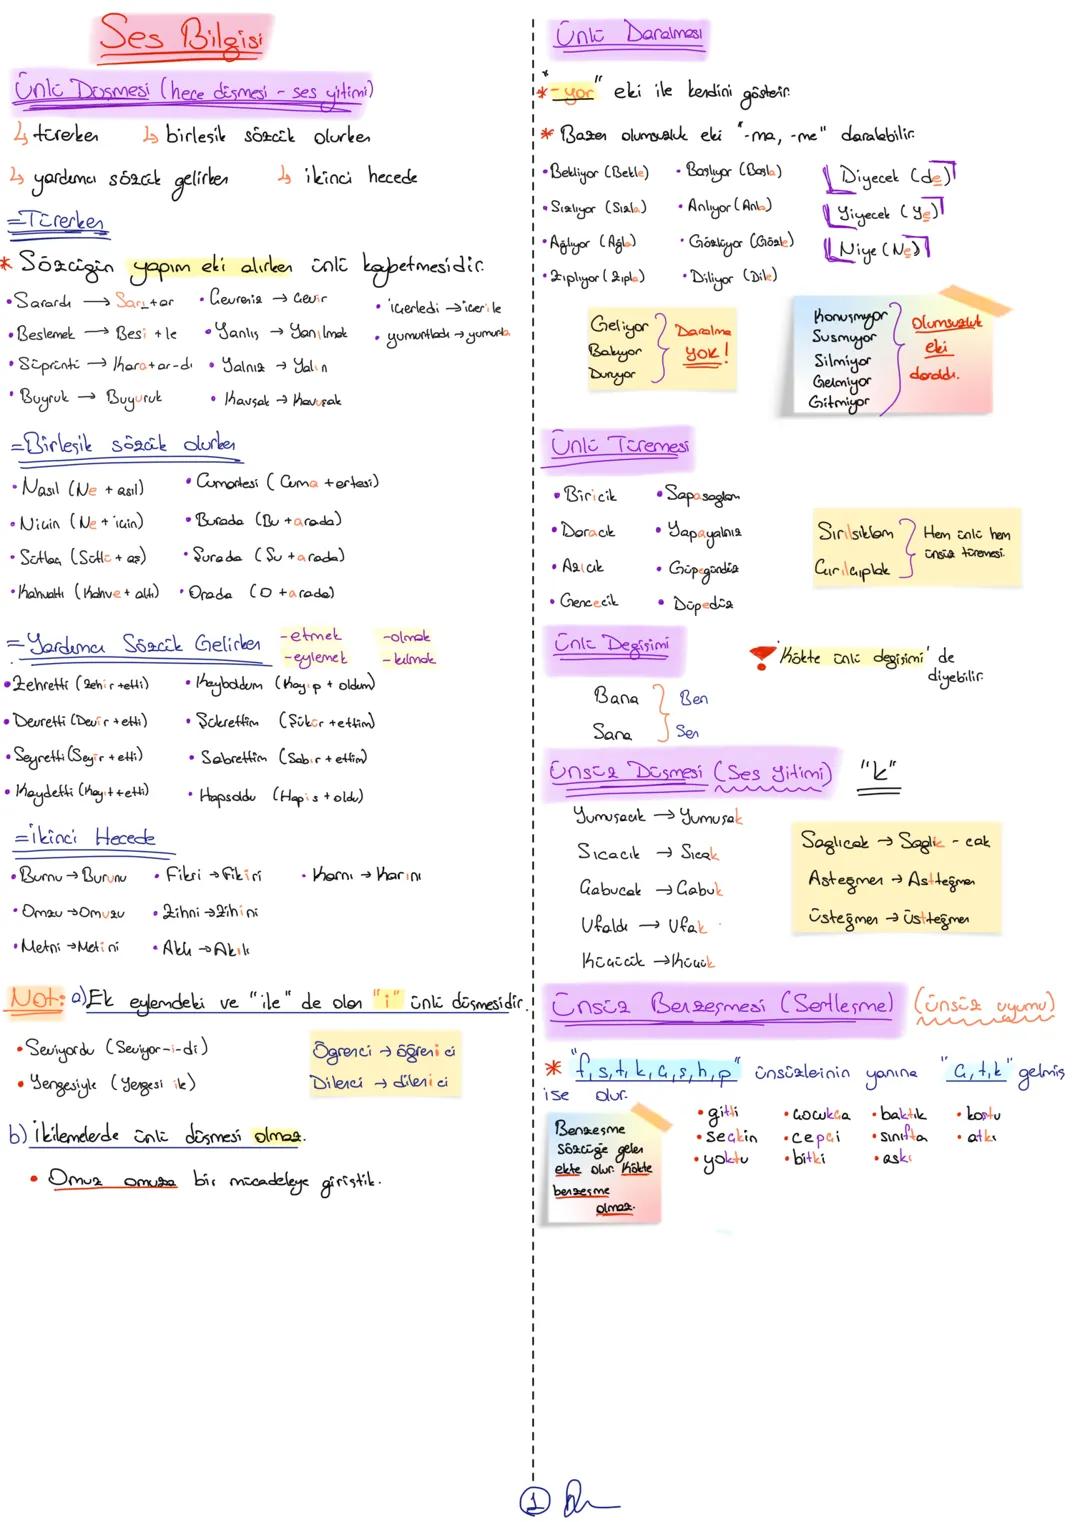 Ses Bilgisi
Ünlü Düşmesi (hece düşmesi - ses yitimi)
↳ türerken ↳ birleşik sözcük olurken
↳ yardımcı sözcük gelirken ↳ ikinci hecede
=Türerken
* Sözcüğün yapım eki alırken ünlü kaybetmesidir.
• Sarardı → Sarı+ar • Çevreniz → Çevir • içerledi → içeri le
• Beslemek → Besi+le • Yanlış → Yanılmak • yumurtladı → yumurta
• Süprüntü → Kara+ar-dı • Yalnız → Yalın
• Buyruk → Buyuruk • Kavşak → Kavuşak
=Birleşik sözcük olurken
• Nasıl (Ne + asıl) • Cumartesi (Cuma +ertesi)
• Niçin (Ne + için) • Burada (Bu +arada)
• Sütlaç (Sütlü + aş) • Şurada (Şu +arada)
• Kahvaltı (Kahve+ altı) • Orada (O +arada)
=Yardımcı Sözcük Gelirken -etmek -olmak
-eylemek -kılmak
• Zehretti (Zehir+etti) • Kayboldum (Kayıp + oldum)
• Devretti (Devir +etti) • Şükrettim (Şükür +ettim)
• Seyretti (Seyir + etti) • Sabrettim (Sabır + ettim)
• Kaydetti (Kayıt+etti) • Hapsoldu (Hapis + oldu)
=İkinci Hecede
• Burnu → Burunu • Fikri → Fikiri • Karnı → Karını
• Omzu → Omuzu • Zihni → Zihini
• Metni → Metini • Aklı → Akılı
Not: a) Ek eylemdeki ve "ile" de olan "i" ünlü düşmesidir.
• Seviyordu (Seviyor-i-di)
• Yengesiyle (Yengesi ile)
Öğrenci → öğrenici
Dilenci → dilenici
b) İkilemelerde ünlü düşmesi olmaz.
• Omuz omuza bir mücadeleye giriştik.
Ünlü Daralması
* "-yor" eki ile kendini gösterir.
* Bazen olumsuzluk eki "-ma, -me" daralabilir.
• Bekliyor (Bekle) • Başlıyor (Başla) Diyecek (de)
• Sızlıyor (Sızla) • Anlıyor (Anla) Yiyecek (Ye)
• Ağlıyor (Ağla) • Gözlüyor (Gözle) Niye (Ne)
• Zıplıyor (Zıpla) • Diliyor (Dile)
Geliyor
Bakıyor
Duruyor
Daralma
YOK!
Konuşmuyor
Susmuyor
Silmiyor
Gelmiyor
Gitmiyor
Olumsuzluk
eki
daraldı.
Ünlü Türemesi
• Biricik • Sapasağlam
• Daracık • Yapayalnız
• Azıcık • Güpegündüz
• Gencecik • Düpedüz
Sırılsıklam
Çırılçıplak
Hem ünlü hem
ünsüz türemesi.
Ünlü Değişimi
! 'Kökte ünlü değişimi' de
diyebilir.
Bana Ben
Sana Sen
Ünsüz Düşmesi (Ses Yitimi) "k"
Yumuşacık → Yumuşak
Sıcacık → Sıcak
Çabucak → Çabuk
Ufaldı → Ufak
Küçücük → Küçük
Sağlıcak → Sağlık - cak
Asteğmen → Astteğmen
Üsteğmen → Üstteğmen
Ünsüz Benzeşmesi (Sertleşme) (ünsüz uyumu)
* "f, s, t, k, ç, ş, h, p" ünsüzlerinin yanına "ç, t, k" gelmiş
ise olur.
Benzeşme
sözcüğe gelen
ekte olur. Kökte
benzeşme
olmaz.
• gitti • çocukça • baktık • koştu
• seçkin • cepçi • sınıfta • atkı
• yoktu • bitki • askı
1